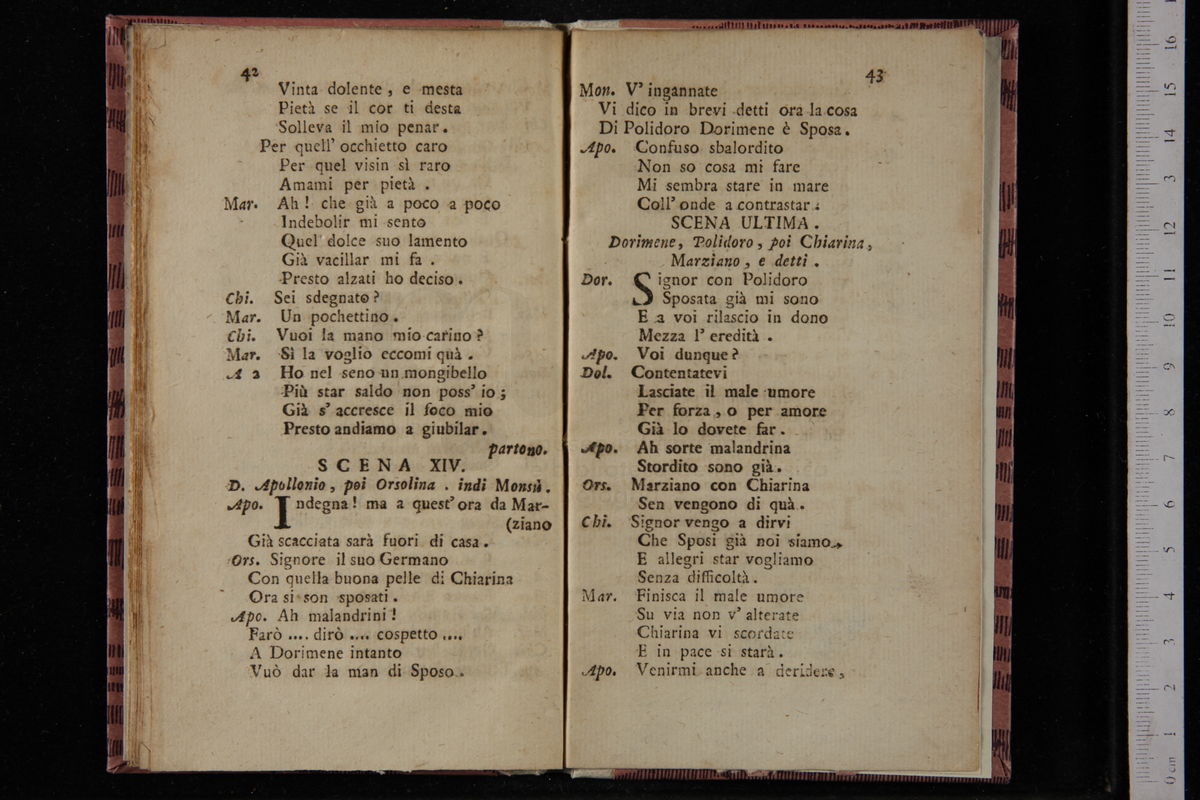 42
Vinta dolente, e mesta
Pietà se il cor ti desta
Solleva il mio penar.
Per quell' occhietto caro
Per quel visin sì raro
Amami per pietà .
Mar. Ah! che già a poco a poco
Indebolir mi sento
Quel dolce suo lamento
Già vacillar mi fa .
Presto alzati ho deciso.
Chi. Sei sdegnato?
Mar. Un pochettino.
Chi. Vuoi la mano mio carino?
Mar. Sì la voglio eccomi quà .
A 2 Ho nel seno un mongibello
Più star saldo non poss' io;
Già s' accresce il foco mio
Presto andiamo a giubilar.
partono.
SCENA XIV.
D. Apollonio, poi Orsolina . indi Monsù.
Apo. Indegna! ma a quest' ora da Mar-
(ziano
Già scacciata sarà fuori di casa.
Ors. Signore il suo Germano
Con quella buona pelle di Chiarina
Ora si son sposati.
Apo. Ah malandrini!
Farò .... dirò .... cospetto ....
A Dorimene intanto
Vuò dar la man di Sposo.
43
Mon. V' ingannate
Vi dico in brevi detti ora la cosa
Di Polidoro Dorimene è Sposa.
Apo. Confuso sbalordito
Non so cosa mi fare
Mi sembra stare in mare
Coll' onde a contrastar.
SCENA ULTIMA.
Dorimene, Polidoro, poi Chiarina,
Marziano, e detti.
Dor. Signor con Polidoro
Sposata già mi sono
E a voi rilascio in dono
Mezza l' eredità .
Apo. Voi dunque?
Dol. Contentatevi
Lasciate il male umore
Per forza, o per amore
Già lo dovete far.
Apo. Ah sorte malandrina
Stordito sono già.
Ors. Marziano con Chiarina
Sen vengono di quà.
Chi. Signor vengo a dirvi
Che Sposi già noi siamo
E allegri star vogliamo
Senza difficoltà.
Mar. Finisca il male umore
Su via non v' alterate
Chiarina vi scordate
E in pace si starà.
Apo. Venirmi anche a deridere,
0 cm 1 2 3 4 5 6 7 8 9 10 11 12 13 14 15 16